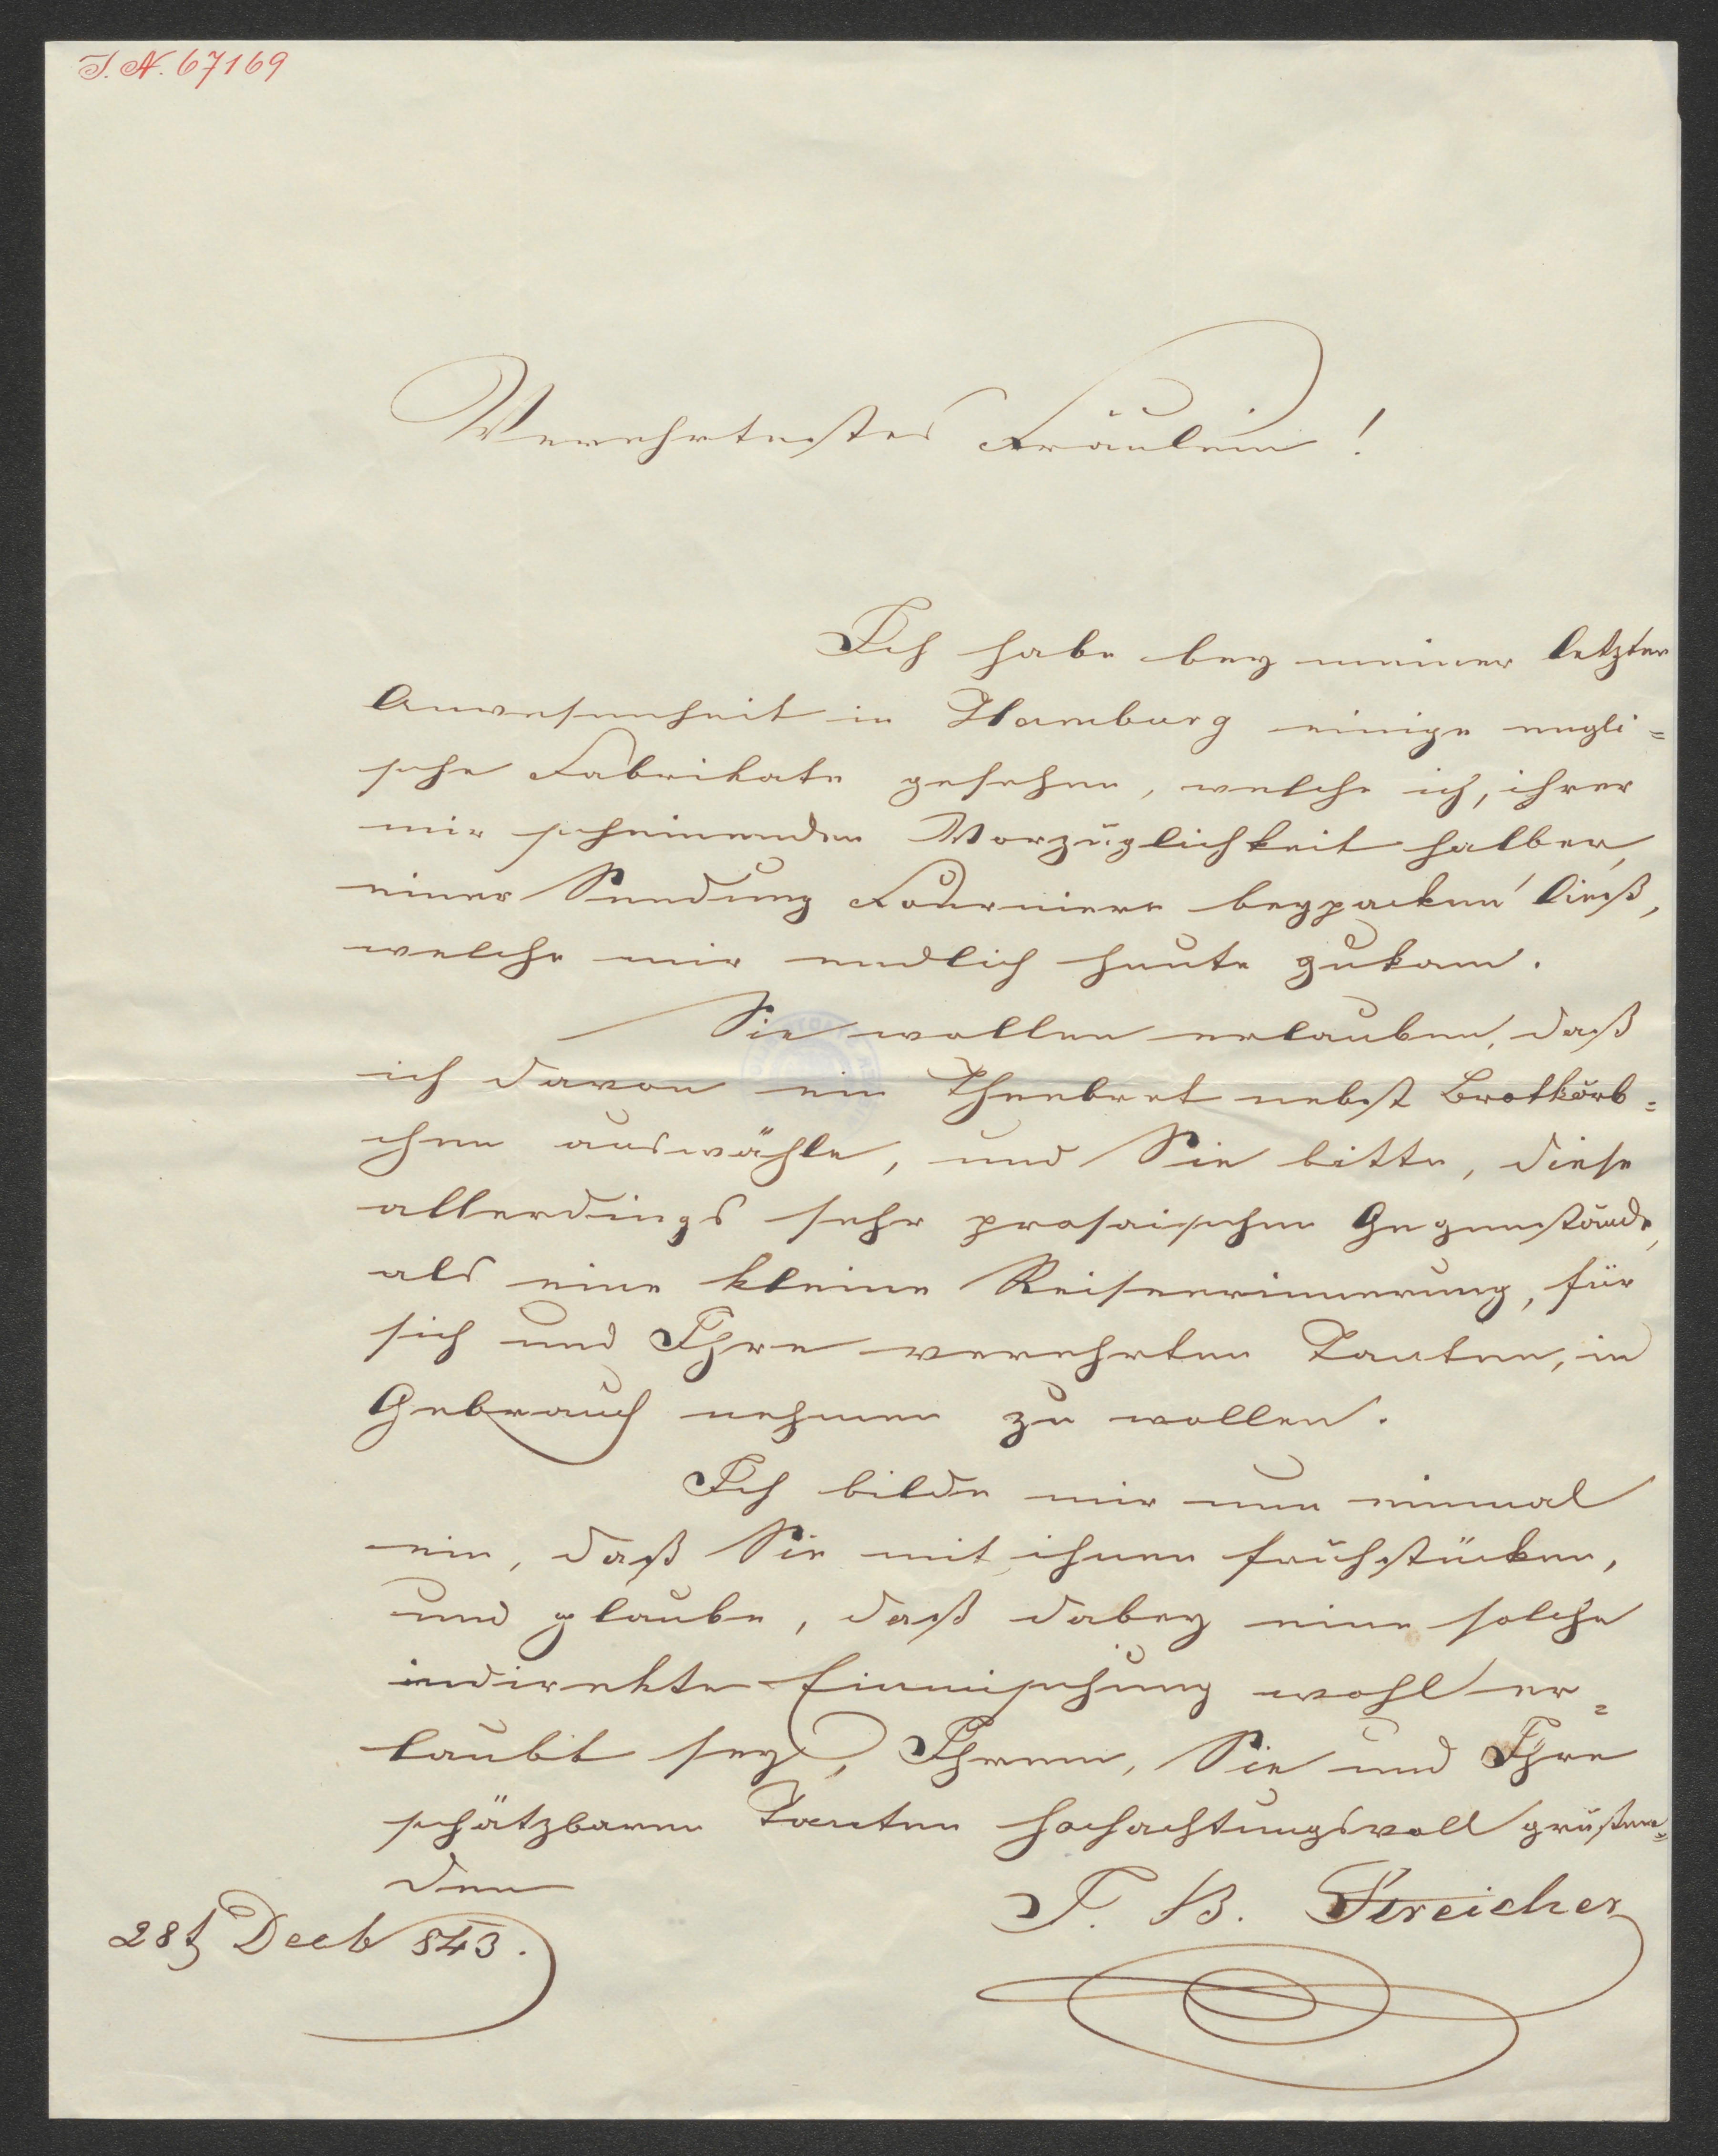 I. N. 67169
Verehrtestes Fräulein!
Ich habe bey meiner letzten
Anwesenheit in Hamburg einige engli=
sche Fabrikate gesehen, welche ich, ihrer
mir scheinenden Vorzüglichkeit halber,
einer Sendung Fourniere beypacken ließ,
welche mir endlich heute zukam.
Sie wollen erlauben, daß
ich davon ein Theebret nebst Brotkörb=
chen auswähle, und Sie bitte, diese
allerdings sehr prosaischen Gegenstände,
als eine kleine Reiseerinnerung, für
sich und Ihre verehrten Tanten, in
Gebrauch nehmen zu wollen.
Ich bilde mir nun einmal
ein, daß Sie mit ihnen frühstücken,
und glaube, daß dabey eine solche
indirekte Einmischung wohl er=
laubt sey, Ihrem, Sie und Ihre
schätzbaren Tanten hochachtungsvoll grüßen=
den
J. B. Streicher
28t Decb 843.